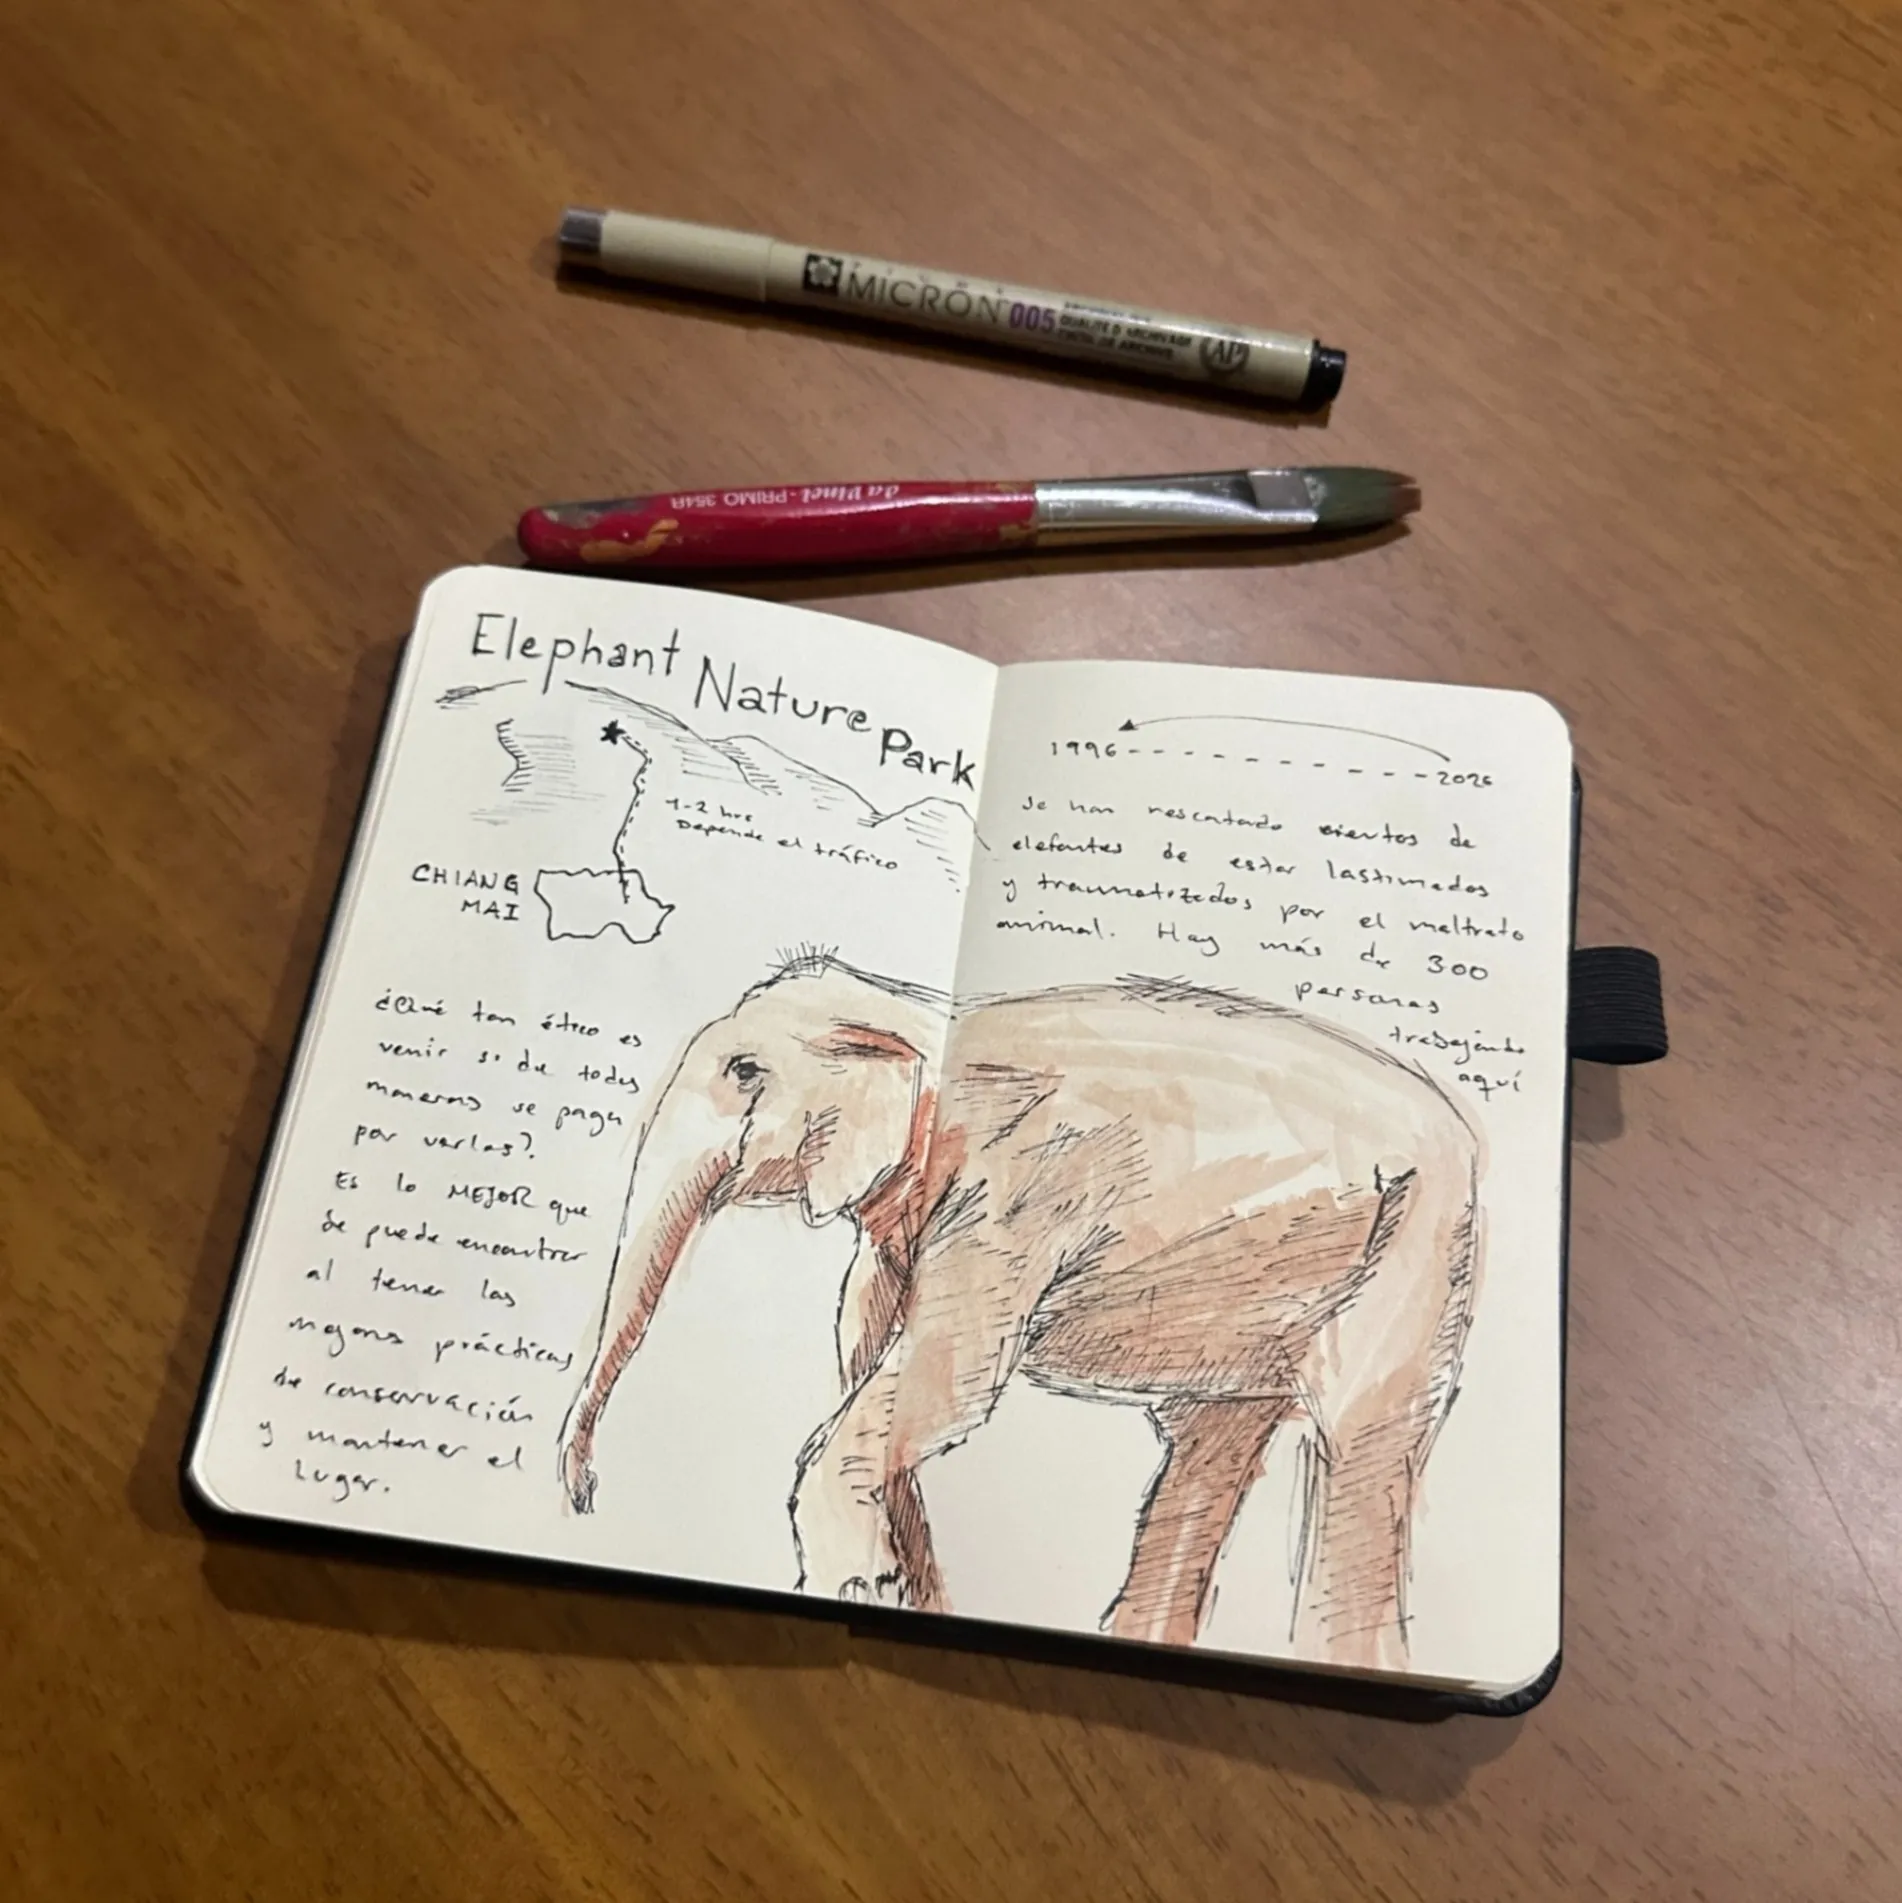 MICRON 005
da Vinci-PRIMO 354R
Elephant
Nature
Park
1-2 hrs
Depende el tráfico
CHIANG
MAI
¿Qué tan ético es
venir si de todas
maneras se paga
por verlas?.
Es lo MEJOR que
se puede encontrar
al tener las
mejores prácticas
de conservación
y mantener el
lugar.
1996 2026
Se han rescatado cientos de
elefantes de estar lastimados
y traumatizados por el maltrato
animal. Hay más de 300
personas
trabajando
aquí